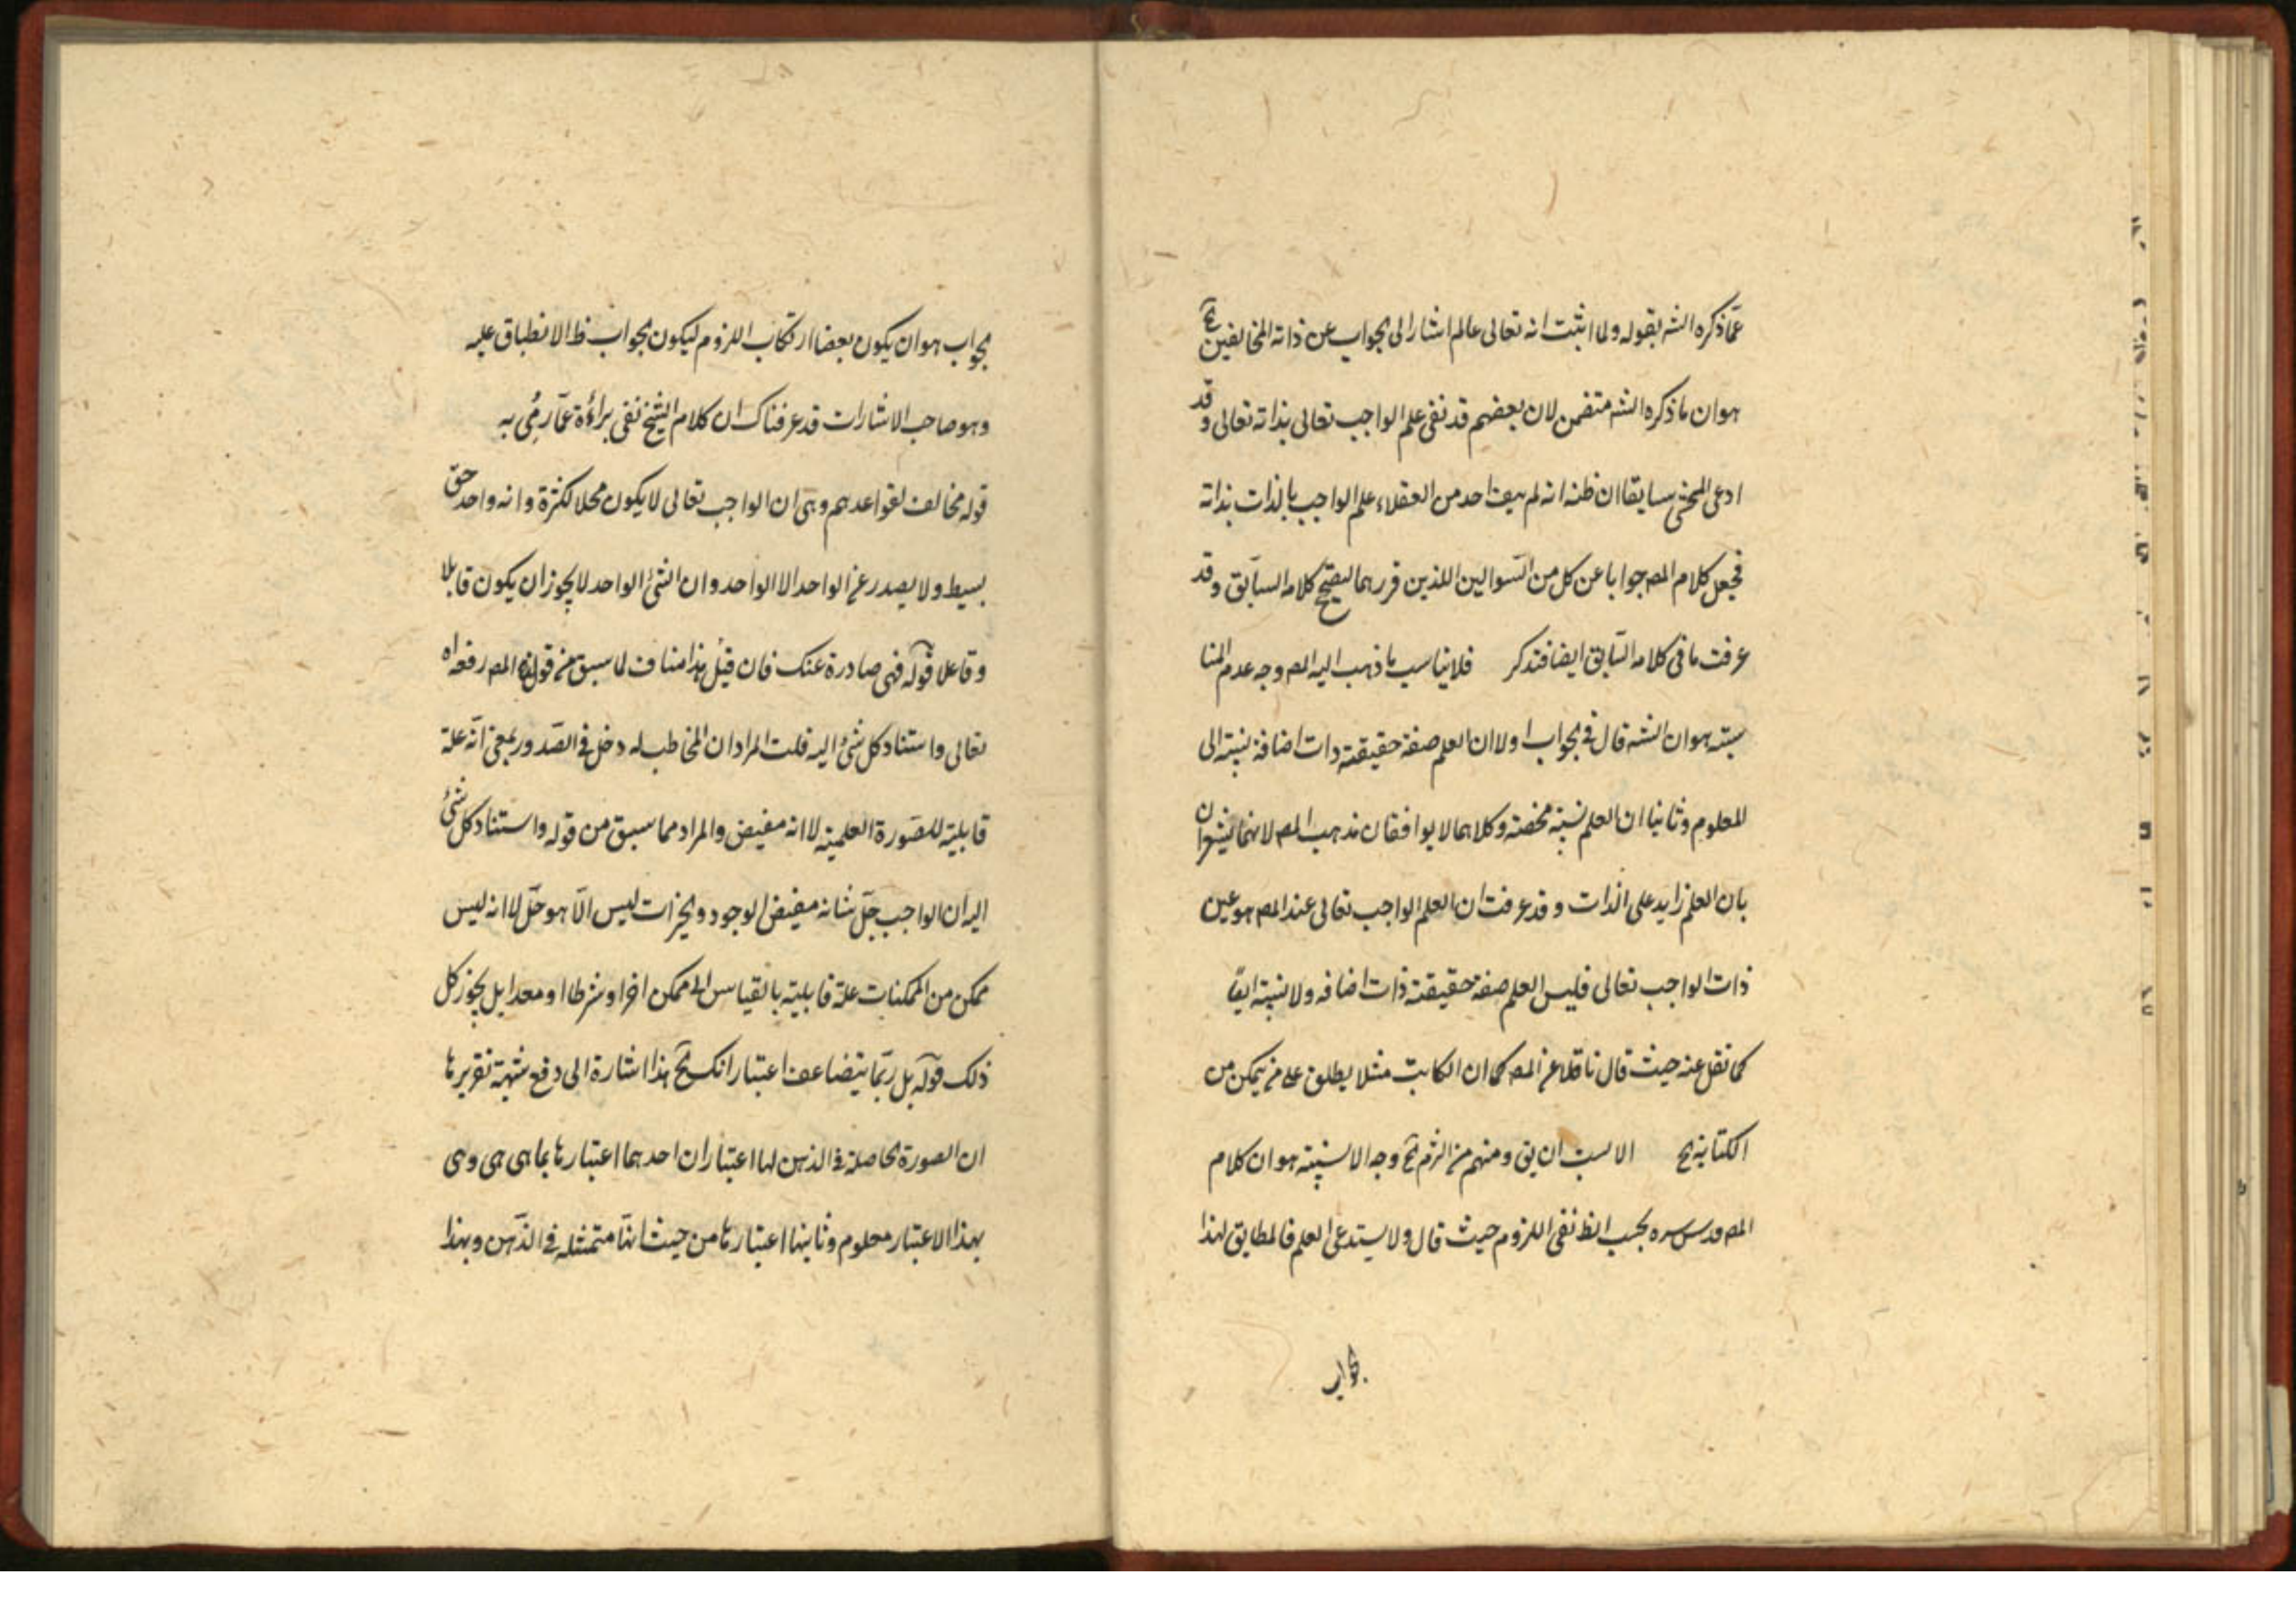 عمّا ذكره الشه بقوله ولما اثبت انه تعالى عالم اشار الى الجواب عن ذاته المخالفين آخ
هو ان ما ذكره الشه متضمن لان بعضهم قد نفى علم الواجب تعالى بذاته تعالى وقد
ادعى المحشى سابقا ان ظنه انه لم ينف احد من العقلاء علم الواجب بالذات بذاته
فجعل كلام المصه جوابا عن كل من السّوالين اللذين قررهما لتصحيح كلامه السابق وقد
عرفت ما فى كلامه السّابق ايضا فتذكر فلا يناسب ما ذهب اليه المصه وجه عدم المنا
سبته هو ان الشه قال فى الجواب اولا ان العلم صفة حقيقته ذات اضافة نسبته الى
المعلوم وثانيا ان العلم نسبته محضته وكلاهما لا يوافقان مذهب المصه لانهما يشعران
بان العلم زايد على الذات وقد عرفت ان العلم الواجب تعالى عند المصه هو عين
ذات الواجب تعالى فليس العلم صفة حقيقته ذات اضافه ولا نسبته ايضاً
كما نقل عنه حيث قال ناقلا عن المصه كما ان الكاتب مثلا يطلق على من يتمكن من
الكتابة آخ الانسب ان يق ومنهم من التزم آخ وجه الانسبيته هو ان كلام
المصه قدس سره بحسب الظ نفى اللزوم حيث قال ولا يستدعى العلم فالمطابق لهذا
الجواب
الجواب هو ان يكون بعضا ارتكاب اللزوم ليكون الجواب ظ الانطباق عليه
وهو صاحب الاشارات قد عرفناك ان كلام الشيخ نفى براءة عمّا رمى به
قوله مخالف لقواعدهم وهى ان الواجب تعالى لا يكون محلا لكثرة وانه واحد حق
بسيط ولا يصدر عن الواحد الا الواحد وان الشئ الواحد لا يجوز ان يكون قابلا
وفاعلا قوله فهى صادرة عنك فان قيل هذا مناف لما سبق من قول المصه رفعه اه
تعالى واستناد كل شئ اليه قلت المراد ان المخاطب له دخل فى الصّدور بمعنى انّه علة
قابليته للصّورة العلميته لا انه مفيض والمراد مما سبق من قوله واستناد كل شئ
اليه ان الواجب جلّ شانه مفيض الوجود والخيرات ليس الّا هو جلّ لا انه ليس
ممكن من الممكنات علة قابليته بالقياس الى ممكن اخر او شرطا او معدا بل يجوز كل
ذلك قوله بل ربّما يتضاعف اعتباراتك آخ هذا اشارة الى دفع شبهة تقريرها
ان الصورة الحاصلة فى الذهن لها اعتباران احدهما اعتبارها بما هى هى وهى
بهذا الاعتبار معلوم وثانيها اعتبارها من حيث انها متمثله فى الذّهن وبهذا